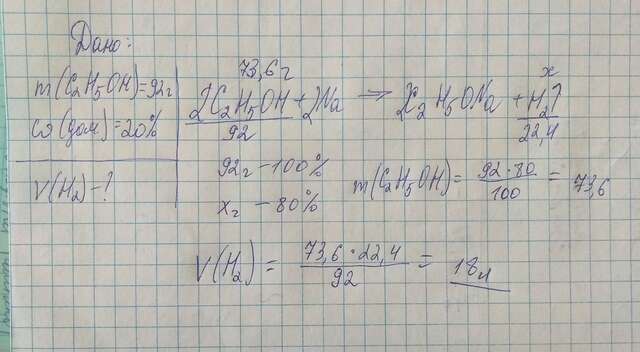 Дано:
m(C₂H₅OH)=92г
ω(дом)=20%
V(H₂)-?
73,6г x
2C₂H₅OH+2Na → 2C₂H₅ONa+H₂↑
92 22,4
92г-100%
xг-80%
m(C₂H₅OH)= 92·80/100 = 73,6
V(H₂)= 73,6·22,4/92 = 18л